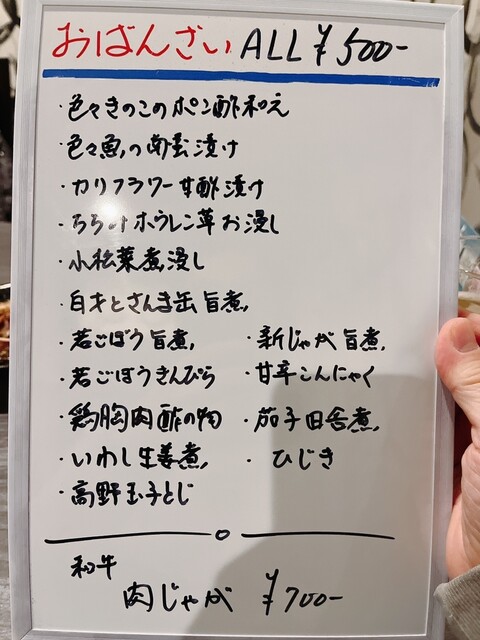 おばんざい ALL ¥500-
・色々きのこのポン酢和え
・色々魚の南蛮漬け
・カリフラワー甘酢漬け
・ちぢみホウレン草お浸し
・小松菜煮浸し
・白才とさんま缶旨煮
・若ごぼう旨煮
・新じゃが旨煮
・若ごぼうきんぴら
・甘辛こんにゃく
・鶏胸肉酢の物
・茄子田舎煮
・いわし生姜煮
・ひじき
・高野玉子とじ
和牛
肉じゃが ¥700-